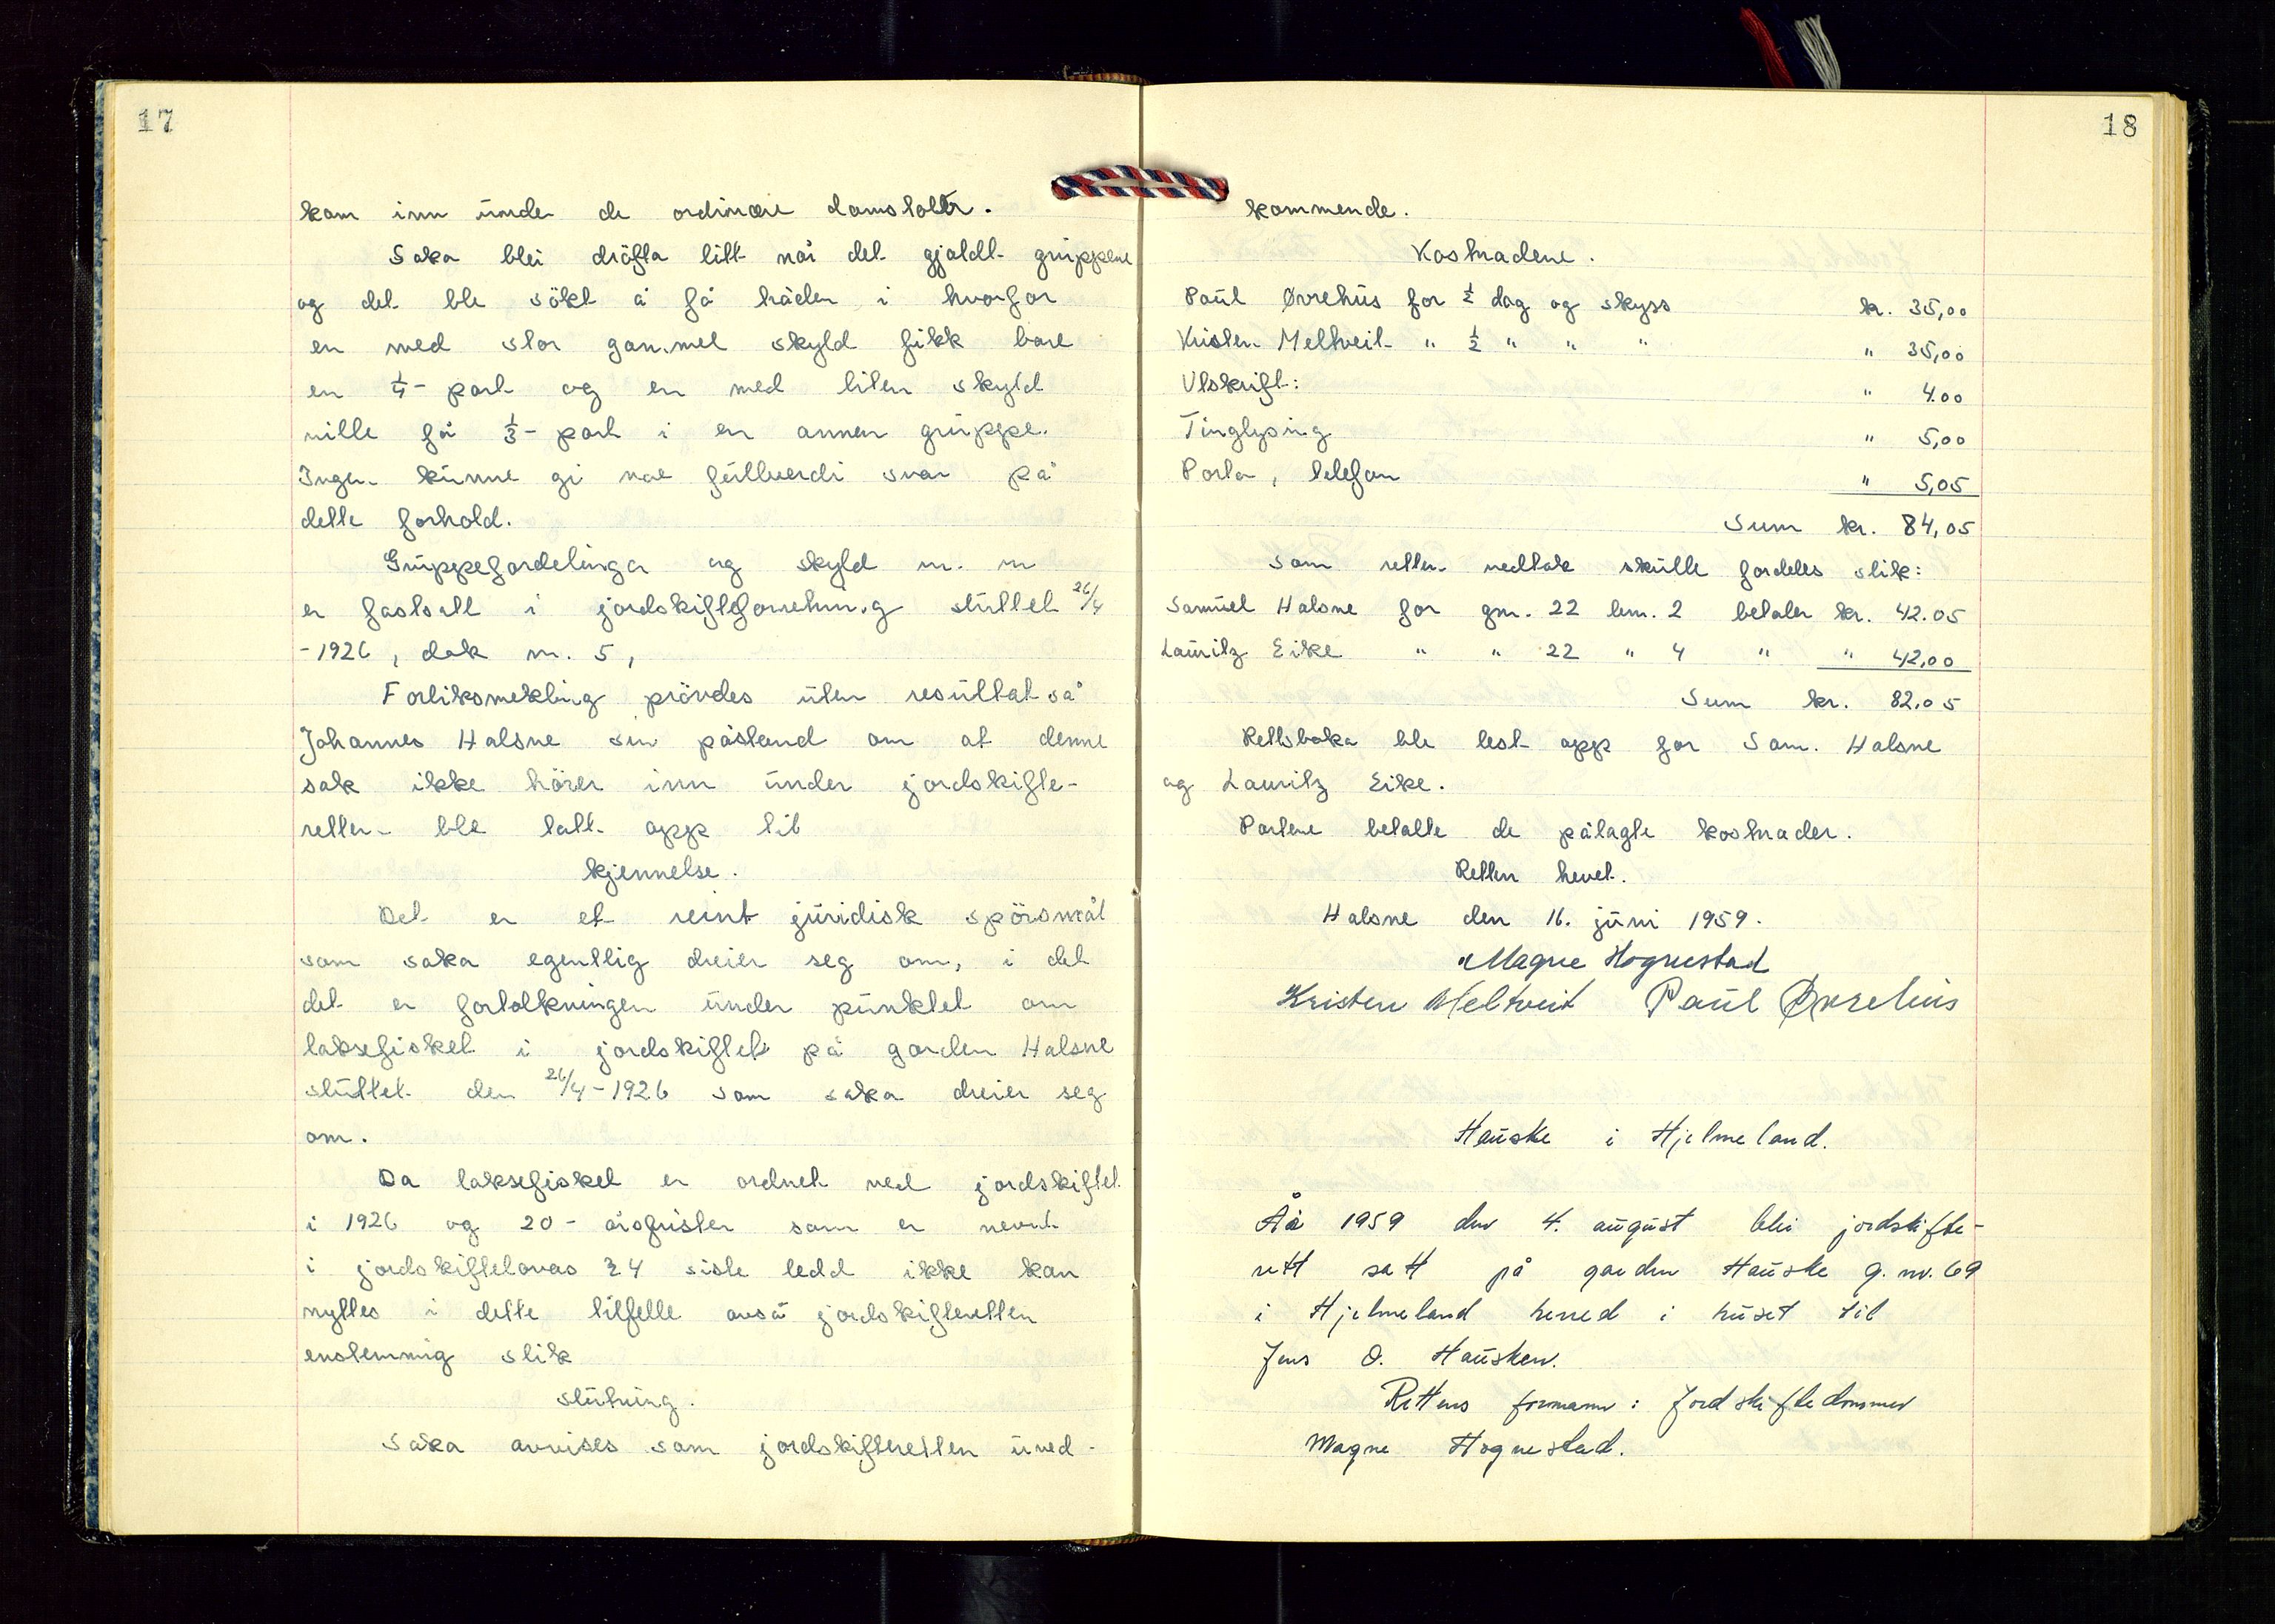 17
kom inn under de ordinære domstoler.
Saka blei dröfta litt når det gjaldt gruppene
og det ble sökt å få håden i hvorfor
en med stor gammel skyld fikk bare
en 1/4 - part og en med liten skyld
ville få 1/3 - part i en annen gruppe.
Ingen kunne gi noe fullverdi svar på
dette forhold.
Gruppefordelinga og skyld m. m
er fastsatt i jordskifteforretning sluttet 26/4
-1926, dok nr. 5,
Forliksmekling prövdes uten resultat så
Johannes Halsne sin påstand om at denne
sak ikke hörer inn under jordskifte-
retten ble tatt opp til
kjennelse.
Det er et reint juridisk spörsmål
som saka egentlig dreier seg om, i det
det er fortolkningen under punktet om
laksefisket i jordskiftet på garden Halsne
sluttet den 26/4-1926 som saka dreier seg
om.
Da laksefisket er ordnet ved jordskiftet
i 1926 og 20-årsfristen som er nevnt
i jordskiftelovas § 4 siste ledd ikke kan
nyttes i dette tilfelle avsa jordskifteretten
enstemmig slik
slutning.
Saka avvises som jordskifteretten uved-
18
kommende.
Kostnadene.
Paul Øvrehus for 1/2 dag og skyss kr. 35,00
Kristen Meltveit " 1/2 " " " " 35,00
Utskrift: " 4.00
Tinglysing " 5,00
Porto, telefon " 5,05
Sum kr. 84,05
Som retten vedtok skulle fordeles slik:
Samuel Halsne for gnr. 22 bnr. 2 betaler kr. 42.05
Lauritz Eike " " 22 " 4 " " 42,00
Sum kr. 82,05
Rettsboka ble lest opp for Sam. Halsne
og Lauritz Eike.
Partene betalte de pålagte kostnader.
Retten hevet.
Halsne den 16. juni 1959.
Magne Hognestad
Kristen Meltveit Paul Øvrehus
Hauske i Hjelmeland.
År 1959 den 4. august blei jordskifte-
rett satt på garden Hauske g. nr. 69
i Hjelmeland herred i huset til
Jens O. Hausken.
Rettens formann: Jordskiftedommer
Magne Hognestad.